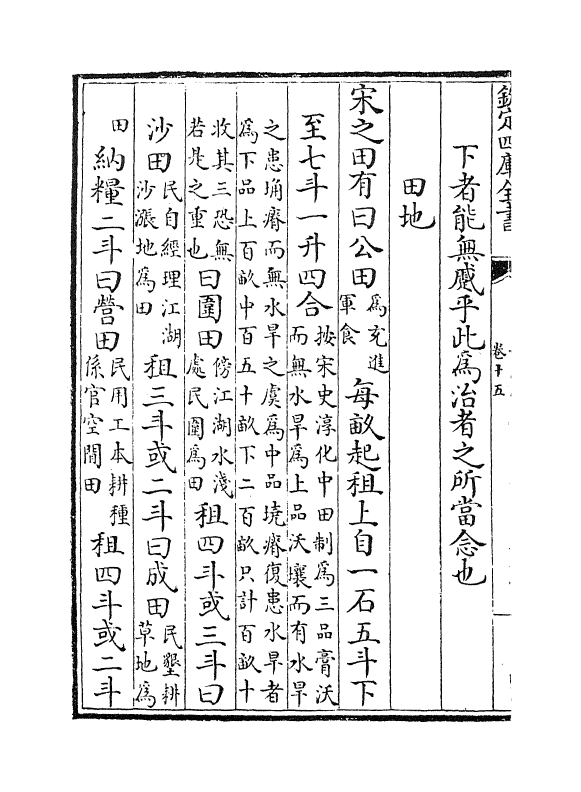 欽定四庫全書
卷十五
下者能無蹙乎此為治者之所當念也
田地
宋之田有曰公田為充進軍食每畝起租上自一石五斗下
至七斗一升四合按宋史淳化中田制為三品膏沃而無水旱為上品沃壤而有水旱
之患埆瘠而無水旱之虞為中品墝瘠復患水旱者為下品上百畝中百五十畝下二百畝只計百畝十
收其三恐無若是之重也曰圍田傍江湖水淺處民圍為田租四斗或三斗曰
沙田民自經理江湖沙漲地為田租三斗或二斗曰成田民墾耕草地為
田納糧二斗曰營田民用工本耕種係官空閒田租四斗或二斗